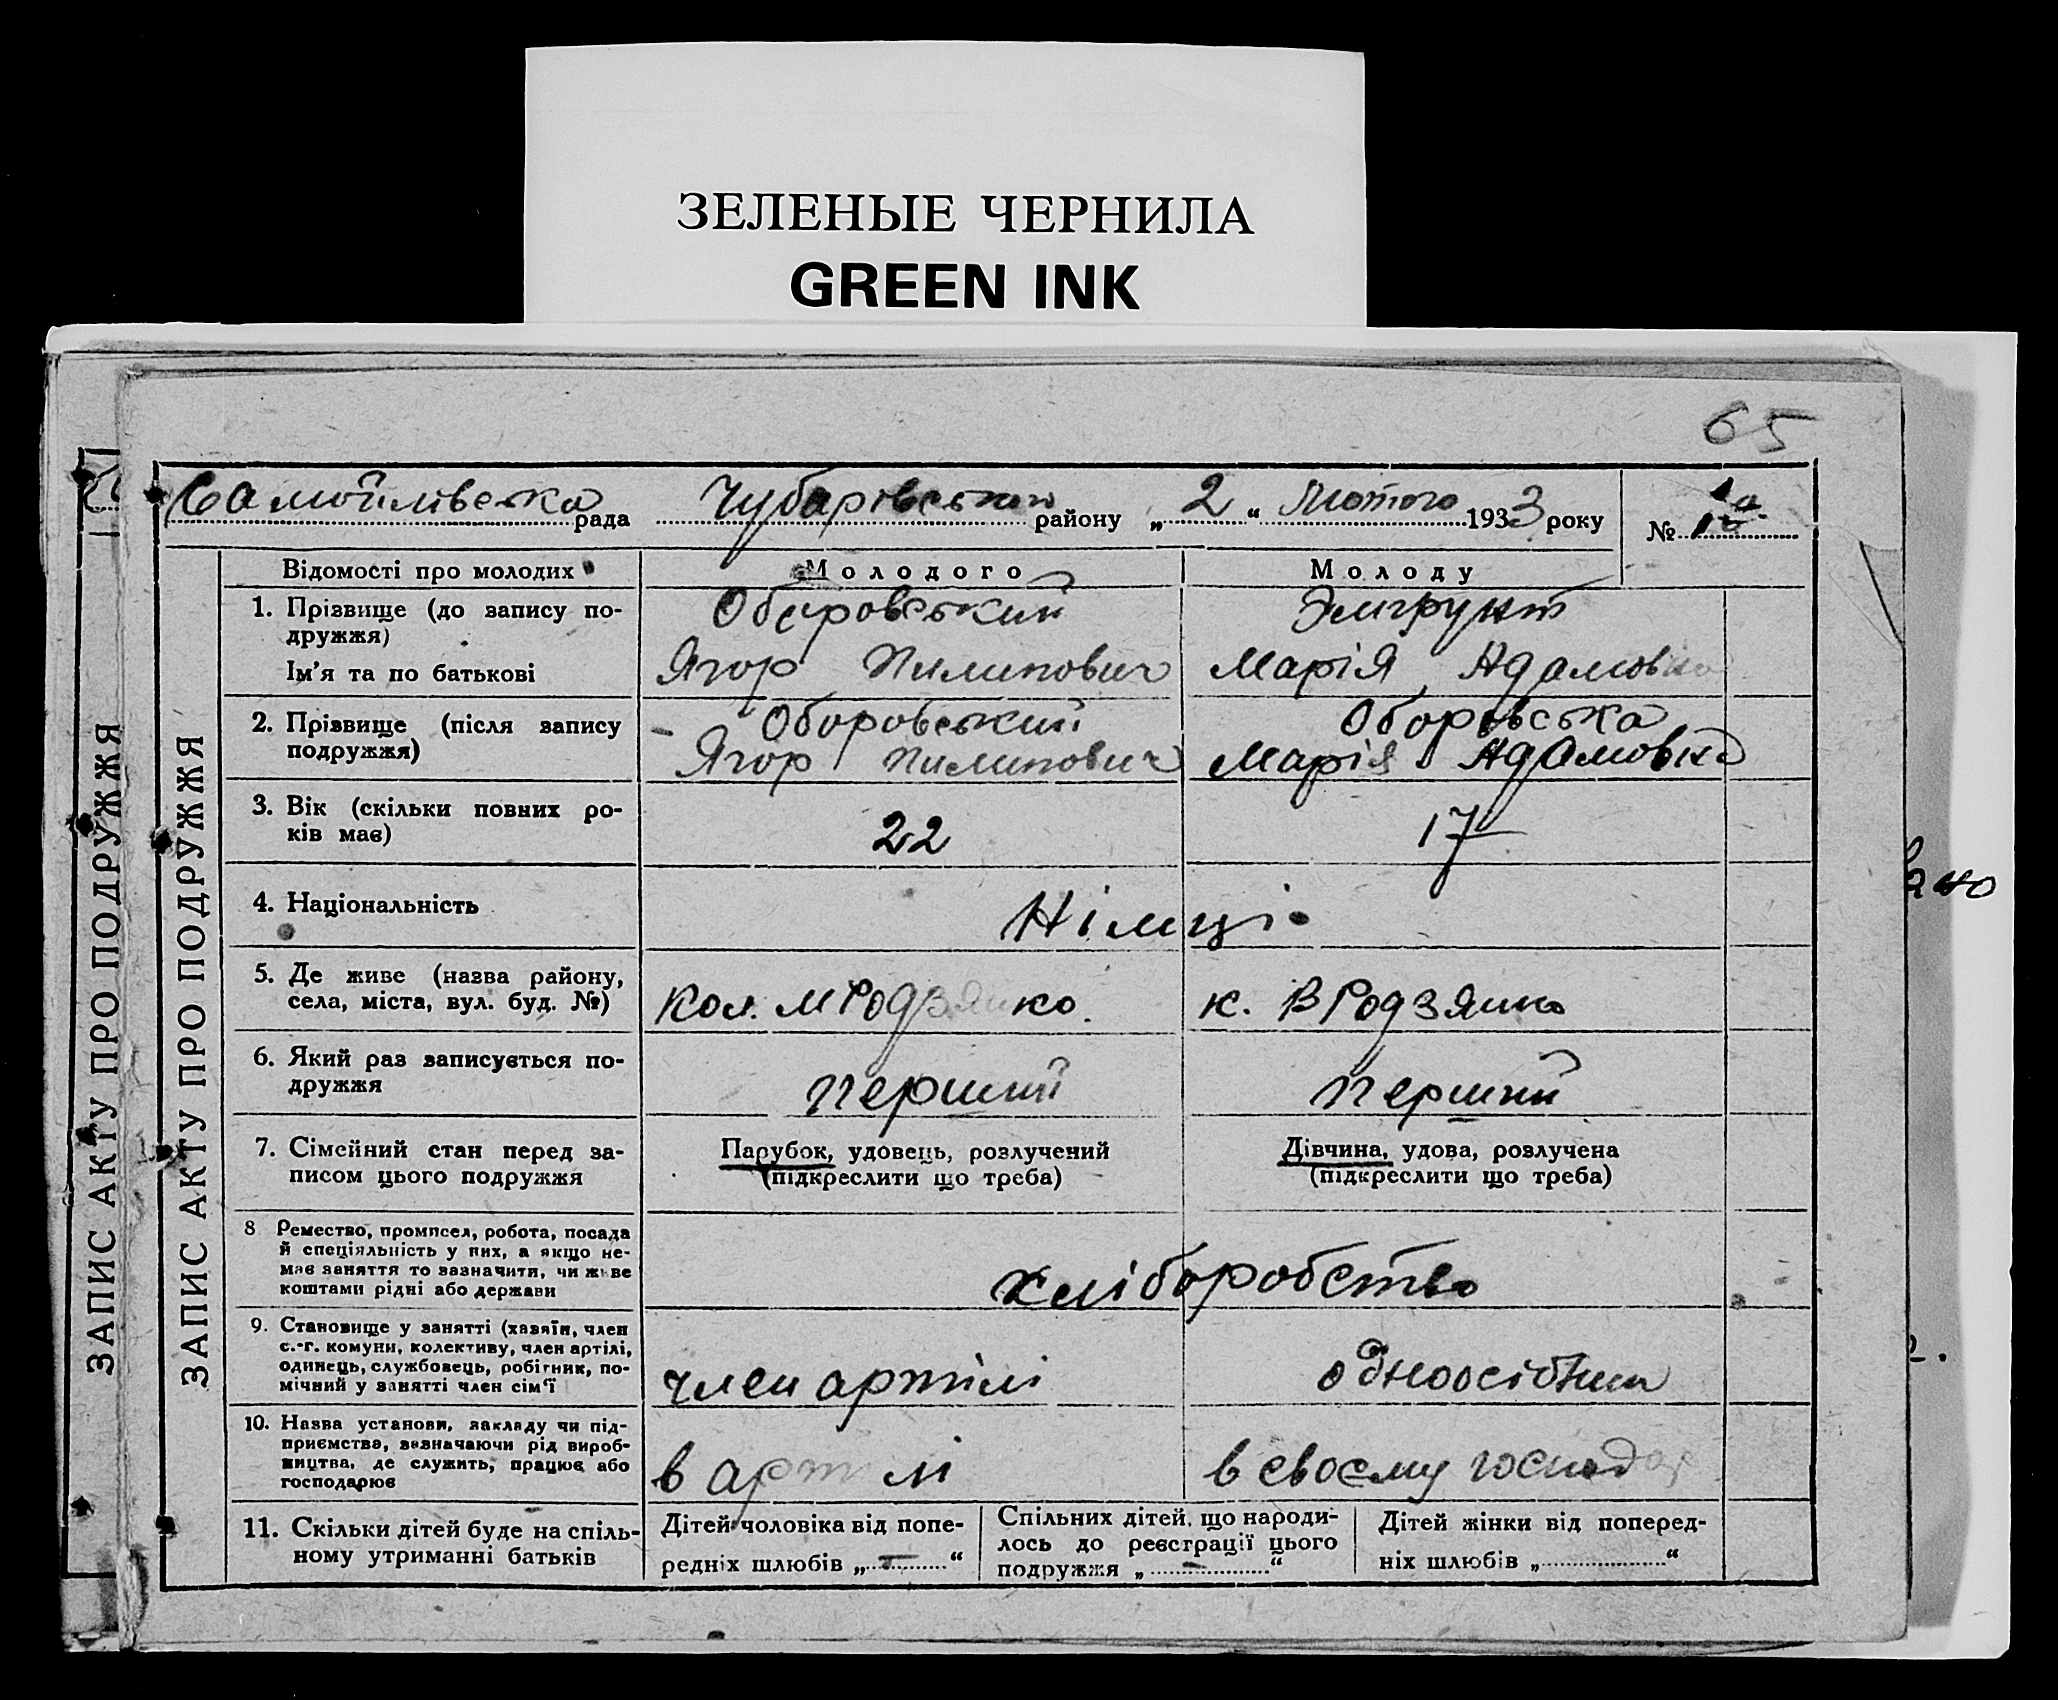 ЗЕЛЕНЫЕ ЧЕРНИЛА
GREEN INK
65
Самойлівська рада Чубарівський району „2“ Лютого 1933 року № 1а
ЗАПИС АКТУ ПРО ПОДРУЖЖЯ
ЗАПИС АКТУ ПРО ПОДРУЖЖЯ
Відомості про молодих Молодого Молоду
1. Прізвище (до запису по-
дружжя)
Оборовський Эмгрунт
Ім'я та по батькові Ягор Пилипович Марія Адамовна
2. Прізвище (після запису
подружжя)
Оборовський Оборовська
Ягор Пилипович Марія Адамовна
3. Вік (скільки повних ро-
ків має)
22 17
4. Національність Німці
5. Де живе (назва району,
села, міста, вул. буд. №)
Кол. М Родзянко. к. В Родзянко
6. Який раз записується по-
дружжя
перший перший
7. Сімейний стан перед за-
писом цього подружжя
Парубок, удовець, розлучений
(підкреслити що треба)
Дівчина, удова, розлучена
(підкреслити що треба)
8 Ремество, промисел, робота, посада
й спеціяльність у них, а якщо не-
має заняття то зазначити, чи живе
коштами рідні або держави
хліборобство
9. Становище у занятті (хазяїн, член
с.-г. комуни, колективу, член артілі,
одинець, службовець, робітник, по-
мічний у занятті член сім'ї
член артілі одноосібник
10. Назва установи, закладу чи під-
приємства, зазначаючи рід вироб-
ництва, де служить, працює або
господарює
в артілі в своєму господар
11. Скільки дітей буде на спіль-
ному утриманні батьків
Дітей чоловіка від попе-
редніх шлюбів „ — “
Спільних дітей, що народи-
лось до реєстрації цього
подружжя „ — “
Дітей жінки від поперед-
ніх шлюбів „ “